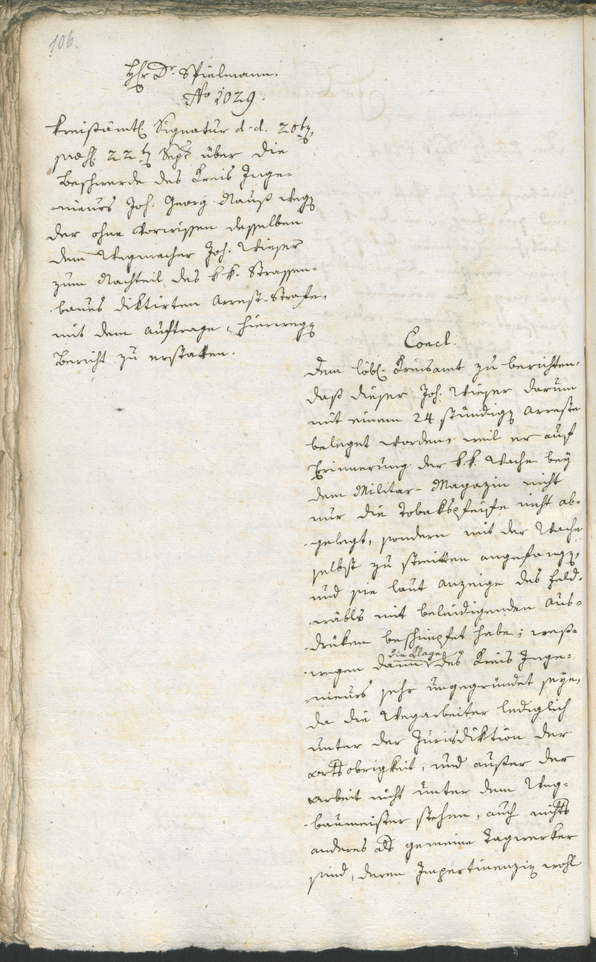 106.
Hr Dr Spielmann.
No 1029.
Kreisämtl Signatur d. d. 20t
praes 22t Sept über die
Beschwerde des Kreis Inge-
nieurs Joh. Georg Nauß weg
der ohne Vorwissen desselben
dem Wegmacher Joh. Wieser
zum Nachteil des k. k. Strassen-
baues diktirten Arrest-Strafe,
mit dem Auftrage, hierweg
Bericht zu erstatten.
Concl.
Dem löbl. Kreisamt zu berichten,
daß dieser Joh. Wieser darum
mit einem 24 stündig Arreste
beleget worden, weil er auf
Erinnerung der k. k. Wache bey
dem Militar-Magazin nicht
nur die Tobakspfeife nicht ab-
gelegt, sondern mit der Wache
selbst zu streitten angefang,
und sie laut Anzeige des Feld-
wäbls mit beleidigenden Aus-
drüken beschimpfet habe; weß-
wegen dann die Klage des Kreis Inge-
nieurs sehr ungegründet seye,
da die Wegarbeiter lediglich
unter der Jurisdiktion der
Ortsobrigkeit, und ausser der
Arbeit nicht unter dem Weg-
baumeister stehen, auch nichts
anderes als gemeine Tagwerker
sind, deren Impertinenzig wohl